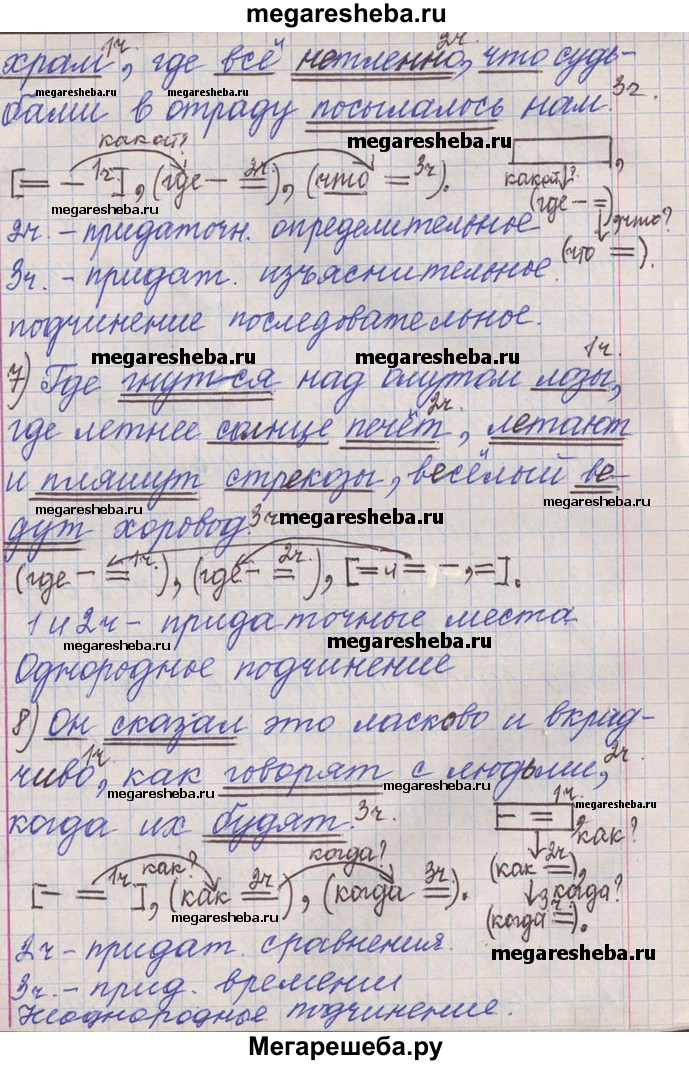 megaresheba.ru
1ч. 2ч.
храм, где всё нетленно, что судь-
megaresheba.ru megaresheba.ru megaresheba.ru
бами в отраду посылалось нам. 3ч.
какой? megaresheba.ru
[= – 1ч], (где – = 2ч), (что = 3ч).
megaresheba.ru
какой?
(где – =)
что?
(что =).
2ч. – придаточн. определительное
megaresheba.ru
3ч. – придат. изъяснительное.
подчинение последовательное.
megaresheba.ru megaresheba.ru
1ч.
7) Где гнутся над омутом лозы,
2ч.
где летнее солнце печёт, летают
и пляшут стрекозы, весёлый ве-
megaresheba.ru
дут хоровод. 3ч megaresheba.ru
(где – = 1ч.), (где – = 2ч.), [= и = –, =].
megaresheba.ru
1 и 2ч – придаточные места
megaresheba.ru
Однородное подчинение
8) Он сказал это ласково и вкрад-
чиво, 1ч как говорят с людьми, 2ч.
megaresheba.ru
когда их будят. 3ч.
1ч.
– =
как?
2ч
(как =),
3ч когда?
(когда =).
как? когда?
[– = 1ч], (как = 2ч), (когда = 3ч).
megaresheba.ru
2ч – придат. сравнения.
megaresheba.ru
3ч. – прид. времени
Неоднородные подчинение.
Мегарешеба.ру